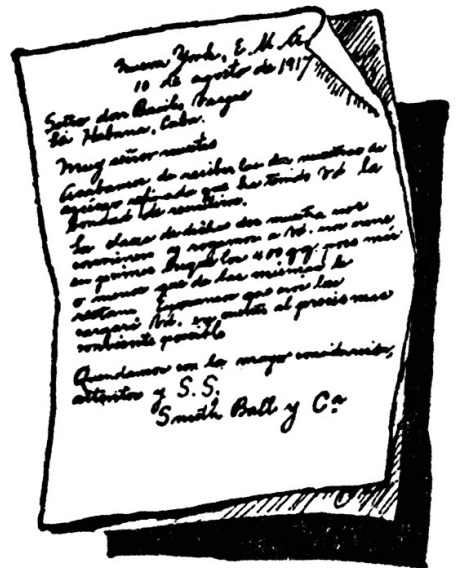 Nueva York, E. U. A.
10 de agosto de 1917
Señor don Basilio Vargas
La Habana, Cuba.
Muy señor nuestro
Acabamos de recibir las dos muestras de
azúcar refinado que ha tenido Vd la
bondad de remitirnos.
La clase de dichas dos muestras nos
conviene y rogamos a Vd. nos envíe
en primer buque los 400 qq. poco más
o menos que de las mismas le
restan. Esperamos que nos los
cargará Vd. en cuenta al precio más
conveniente posible
Quedamos con la mayor consideración,
atentos y S. S.
Smith Ball y Cª